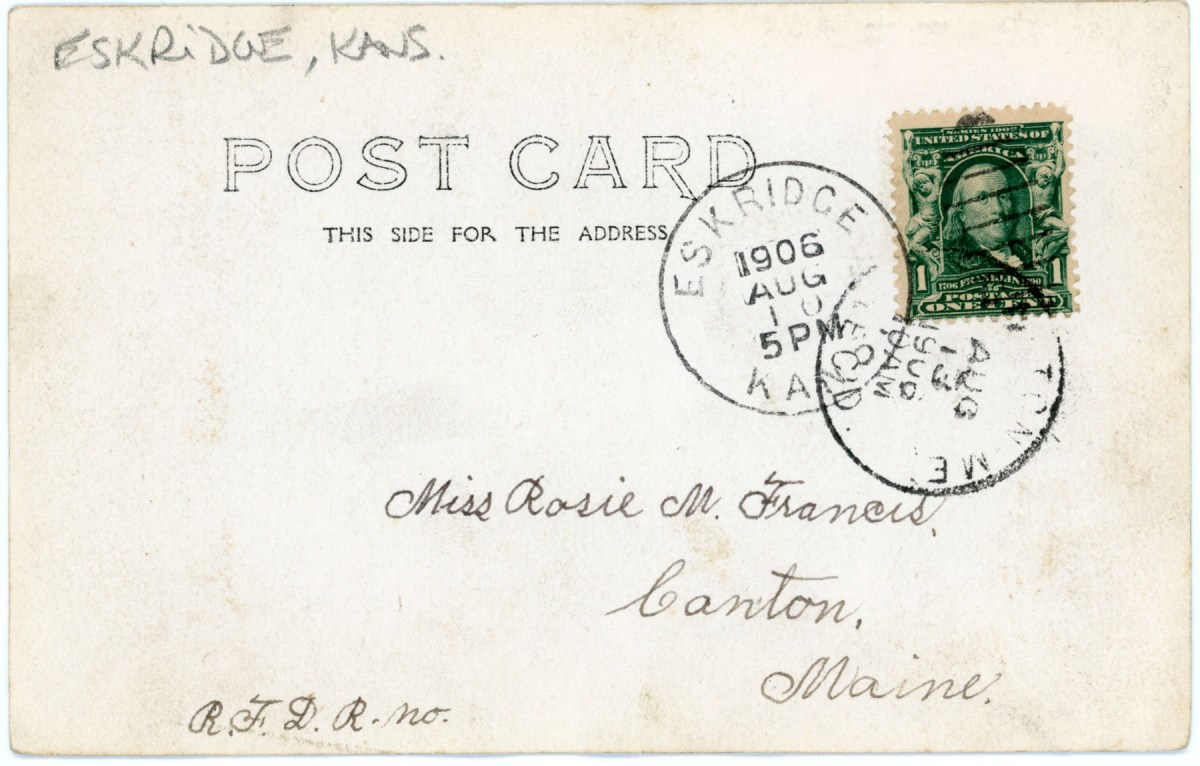 ESKRIDGE, KANS.
POST CARD
THIS SIDE FOR THE ADDRESS
ESKRIDGE
1906
AUG
10
5PM
KA
SERIES 1902
UNITED STATES OF
AMERICA
1 1706 FRANKLIN 1790 1
POSTAGE
ONE CENT
REC'D.
AUG
13
10AM
1906
TON ME.
Miss Rosie M. Francis,
Canton,
Maine.
R.F.D. R. no.